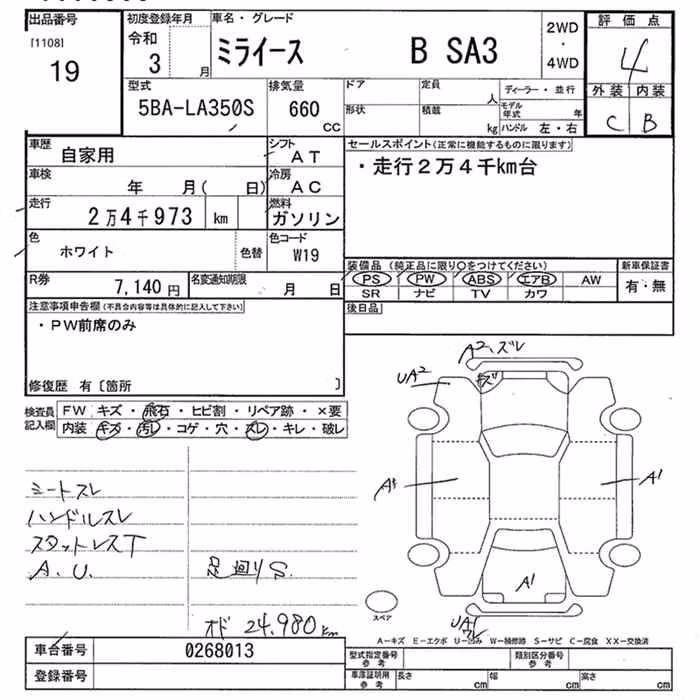 出品番号
[1108]
19
初度登録年月
令和
3 月
車名・グレード
ミライース B SA3
2WD
・
4WD
評価点
4
外装 内装
C B
型式
5BA-LA350S
排気量
660
CC
ドア
定員
人
ディーラー・並行
形状
積載
kg
モデル年式 年
ハンドル 左・右
車歴
自家用
シフト
AT
車検
年 月( 日)
冷房
AC
走行
2万4千973 km
燃料
ガソリン
色
ホワイト
色替
色コード
W19
R券
7,140円
名変通知期限
月 日
セールスポイント(正常に機能するものに限ります)
・走行2万4千km台
装備品 (純正品に限り○をつけてください)
新車保証書
PS PW ABS エアB AW
有・無
SR ナビ TV カワ
後日品
注意事項申告欄(不具合内容等は具体的に記入して下さい)
・PW前席のみ
修復歴 有〔箇所 〕
検査員
記入欄
FW キズ・飛石・ヒビ割・リペア跡・×要
内装 キズ・汚レ・コゲ・穴・スレ・キレ・破レ
シートスレ
ハンドルスレ
スタットレスT
A.U. 足回りS.
オド 24,980km
A2、ズレ
UA2
キズ
A1
A1
A1
UA1
ワレ
スペア
A-キズ E-エクボ U-凹み W-補修跡 S-サビ C-腐食 XX-交換済
車台番号
0268013
登録番号
型式指定番号
参考
類別区分番号
参考
車庫証明用
参考
長さ cm
幅 cm
高さ cm